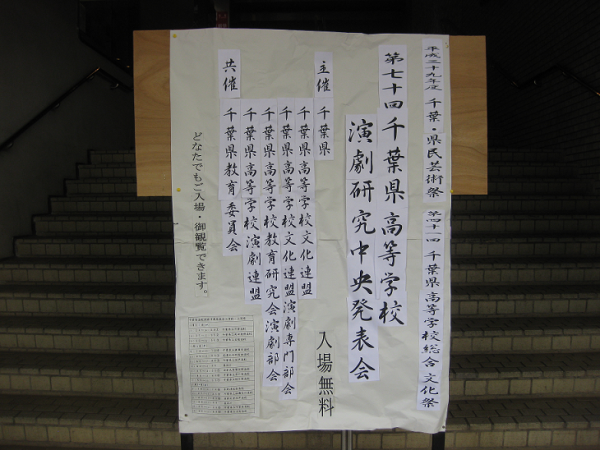 平成二十九年度 千葉・県民芸術祭
第四十一回 千葉県高等学校総合文化祭
第七十回 千葉県高等学校
演劇研究中央発表会
主催 千葉県
千葉県高等学校文化連盟
千葉県高等学校文化連盟演劇専門部会
千葉県高等学校教育研究会演劇部会
千葉県高等学校演劇連盟
共催 千葉県教育委員会
入場無料
どなたでもご入場・御観覧できます。